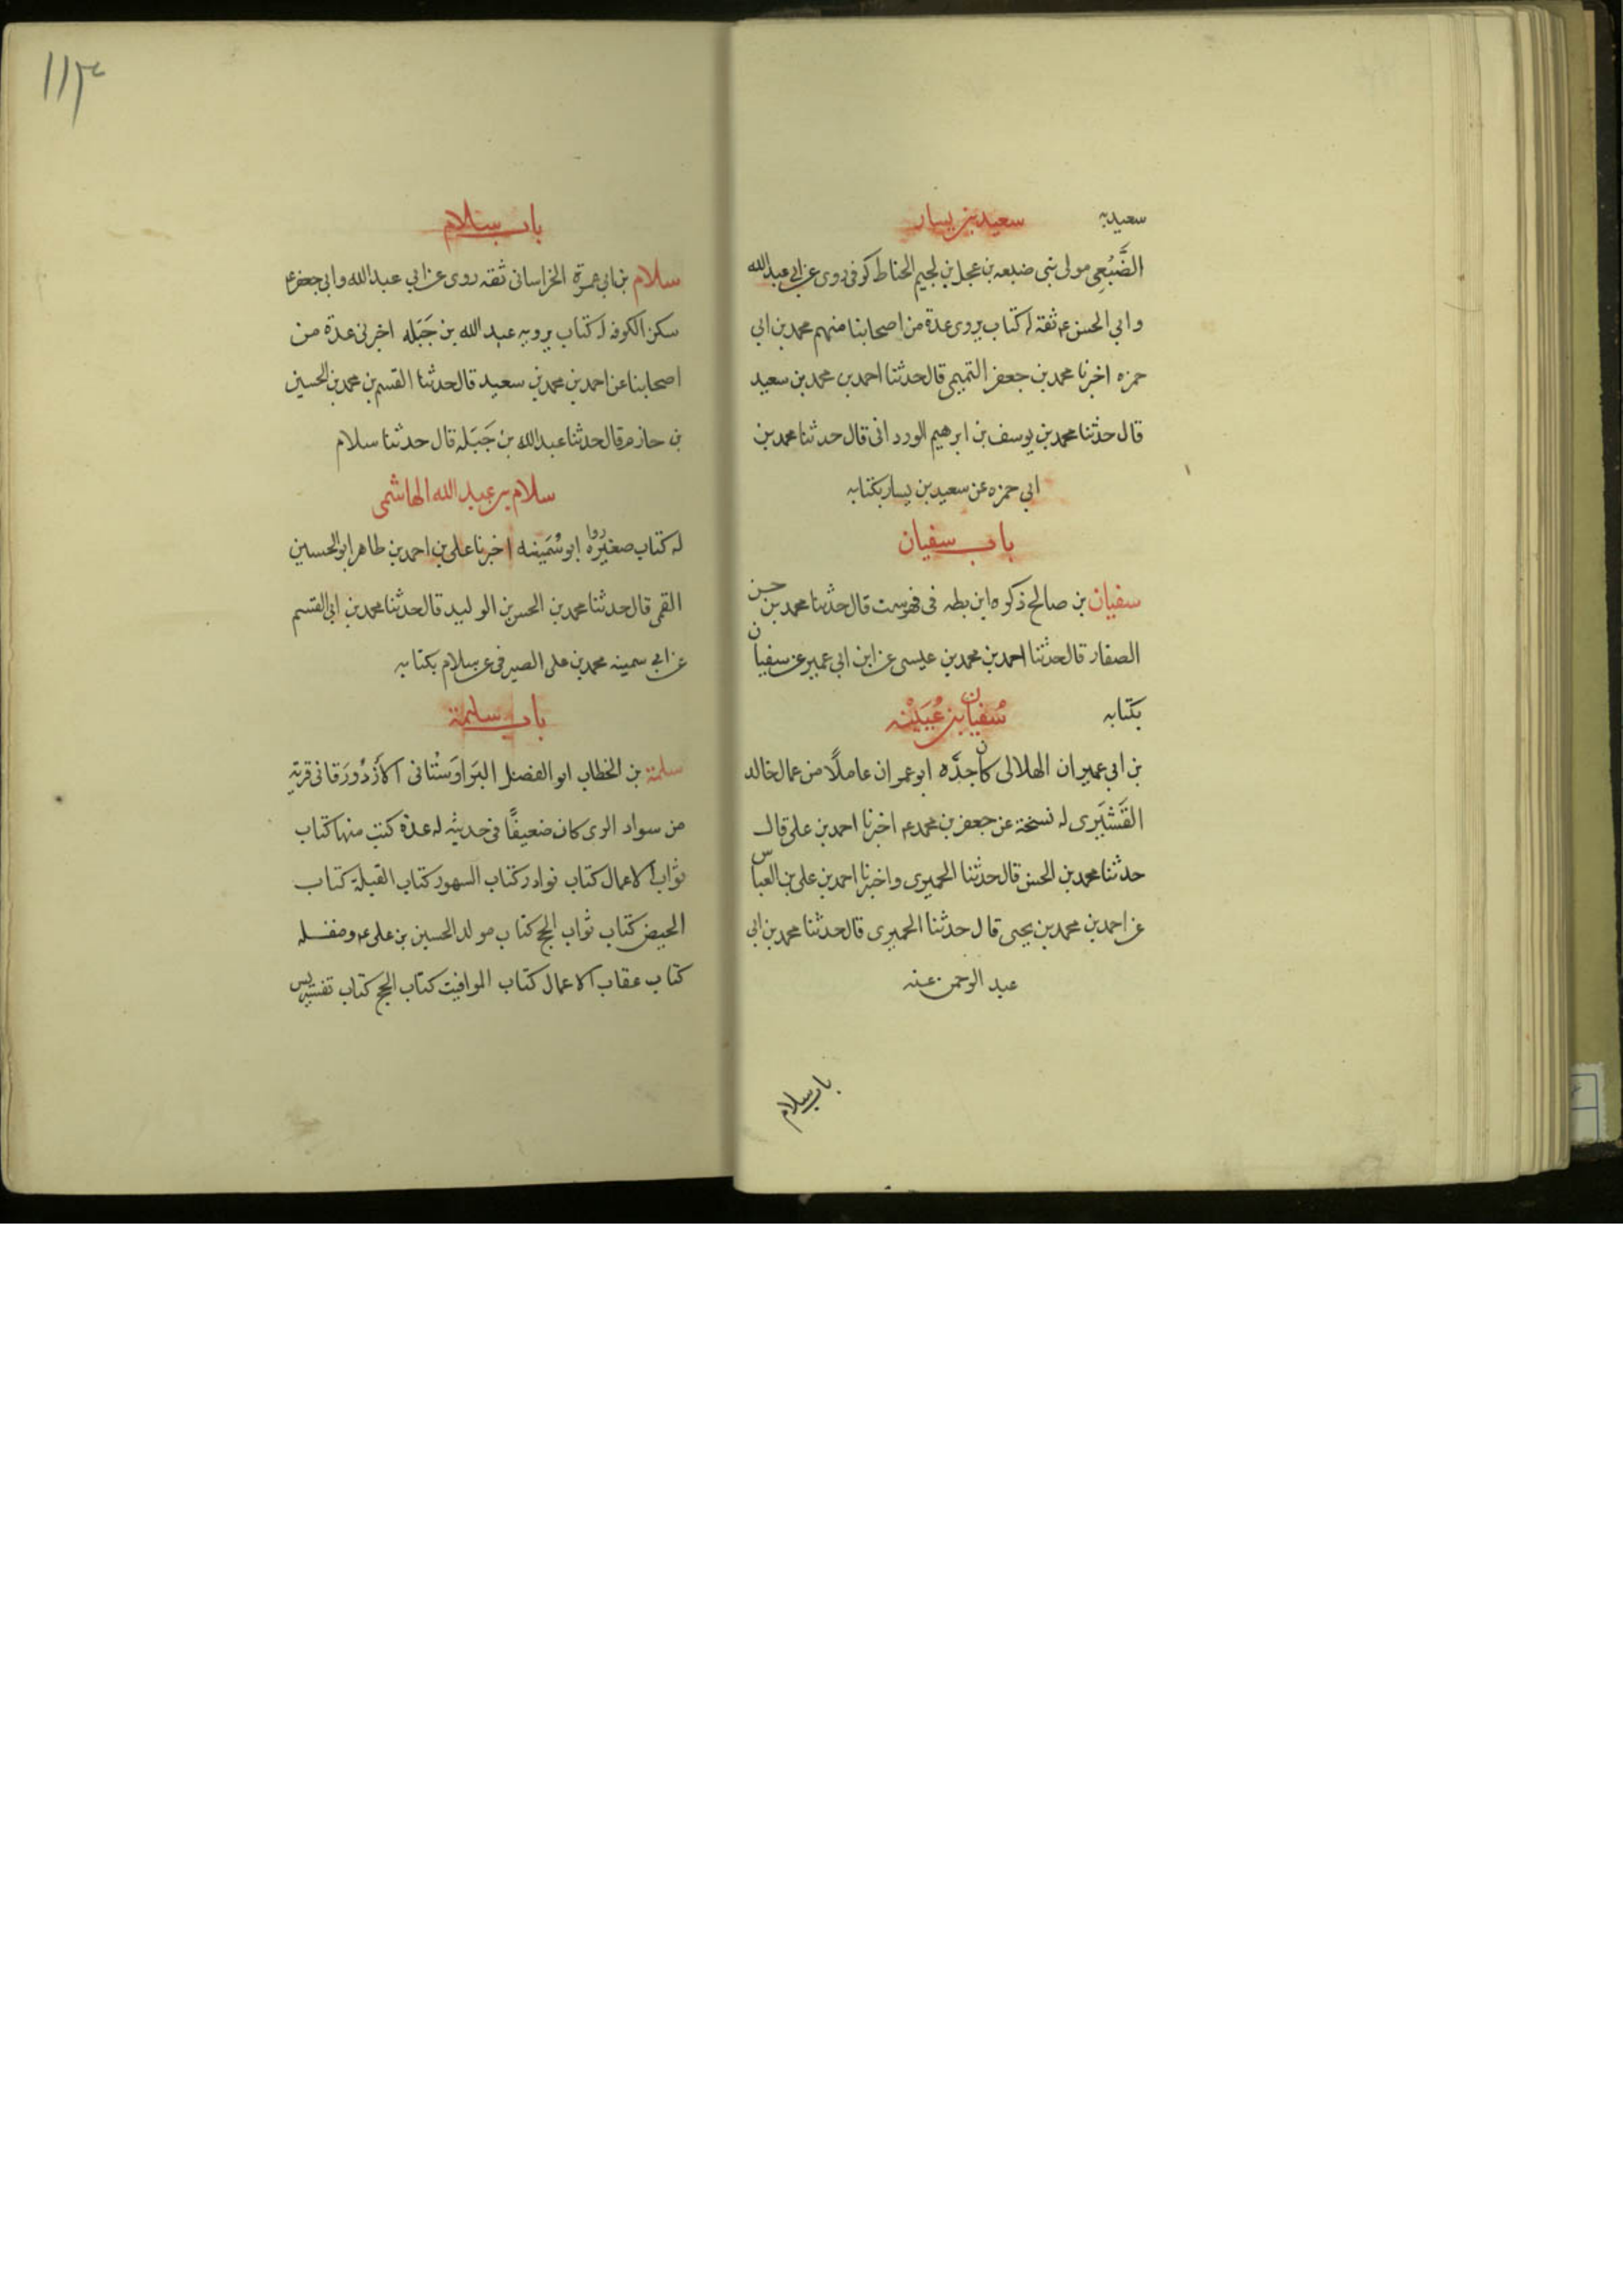 سعيد به سعيد بن يسار
الضَّبُعِي مولى بنى ضبيعه بن عجل بن لجيم الحناط كوفى روى عن ابى عبد الله
وابى الحسن عم ثقة له كتاب يروى عدة من اصحابنا منهم محمد بن ابى
حمزه اخبرنا محمد بن جعفر التميمى قال حدثنا احمد بن محمد بن سعيد
قال حدثنا محمد بن يوسف بن ابرهيم الوردانى قال حدثنا محمد بن
ابى حمزه عن سعيد بن يسار بكتابه
باب سفيان
سفيان بن صالح ذكره ابن بطه فى فهرست قال حدثنا محمد بن حسن
الصفار قال حدثنا احمد بن محمد بن عيسى عن ابن ابى عمير عن سفيان
بكتابه سُفيان بن عُيَيْنه
بن ابى عميران الهلالى كان جدَّه ابو عمران عاملًا من عمال خالد
القَشَيَرى له نسخة عن جعفر بن محمد عم اخبرنا احمد بن على قال
حدثنا محمد بن الحسن قال حدثنا الحميرى واخبرنا احمد بن على بن العباس
عن احمد بن محمد بن يحيى قال حدثنا الحميرى قال حدثنا محمد بن ابى
عبد الرحمن عنه
باب سلام
١١٣
باب سلام
سلام بن ابى عمرة الخراسانى ثقه روى عن ابي عبد الله وابى جعفر ع
سكن الكوفه له كتاب يرويه عبد الله بن جَبَله اخبرنى عدة من
اصحابنا عن احمد بن محمد بن سعيد قال حدثنا القسم بن محمد بن الحسين
بن حازم قال حدثنا عبد الله بن جَبَله قال حدثنا سلام
سلام بن عبد الله الهاشمى
له كتاب صغير رواه ابو سُمَينه اخبرنا على بن احمد بن طاهر ابو الحسين
القمى قال حدثنا محمد بن الحسن بن الوليد قال حدثنا محمد بن ابى القسم
عن ابي سمينه محمد بن على الصيرفى عن سلام بكتابه
باب سلمة
سلمة بن الخطاب ابو الفضل البَرَاوَسْتانى الأَزْدُورَقانى قرية
من سواد الرى كان ضعيفًا فى حديثه له عدة كتب منها كتاب
ثواب الاعمال كتاب نوادر كتاب السهور كتاب القبلة كتاب
الحيض كتاب ثواب الحج كتاب مولد الحسين بن على عم ومقتله
كتاب عقاب الاعمال كتاب المواقيت كتاب الحج كتاب تفسير يس